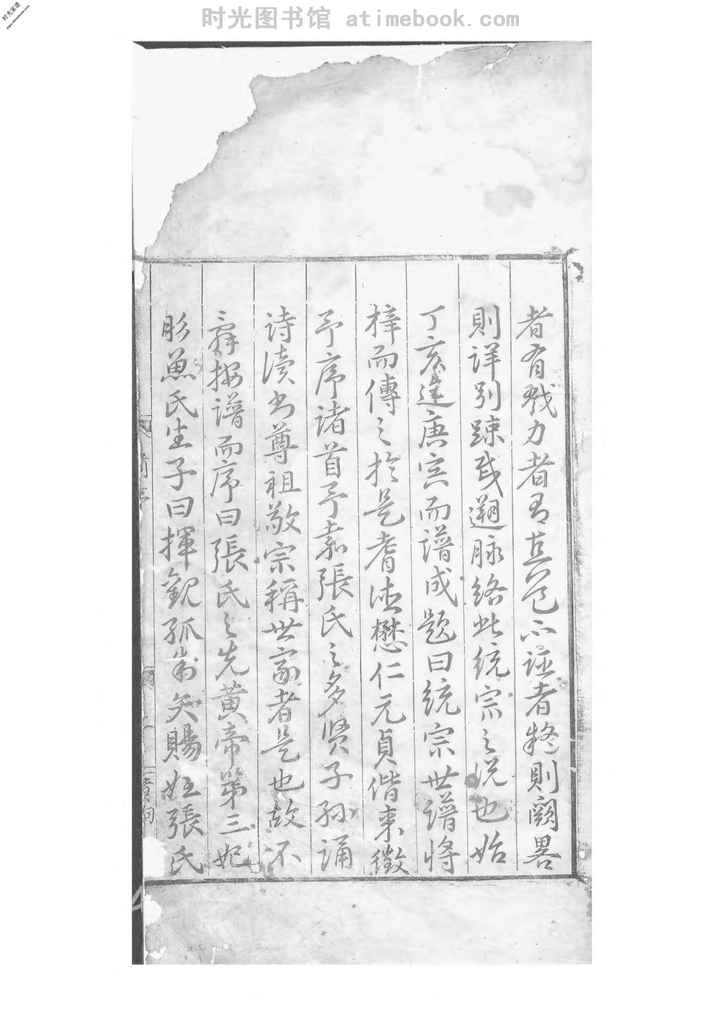 时光图书馆 atimebook.com
者有戮力者有真也不誣者終則闕畧
則詳別踈戚遡脉絡此統宗之说也始
丁亥迄庚寅而譜成题曰統宗世譜将
梓而傳之扵是耆德懋仁元貞偕来徴
予序诸首予嘉張氏之多贤子孙誦
诗读书尊祖敬宗稱世家者是也故不
辞按譜而序曰張氏之先黄帝第三妃
彤魚氏生子曰揮觀弧制矢賜姓張氏